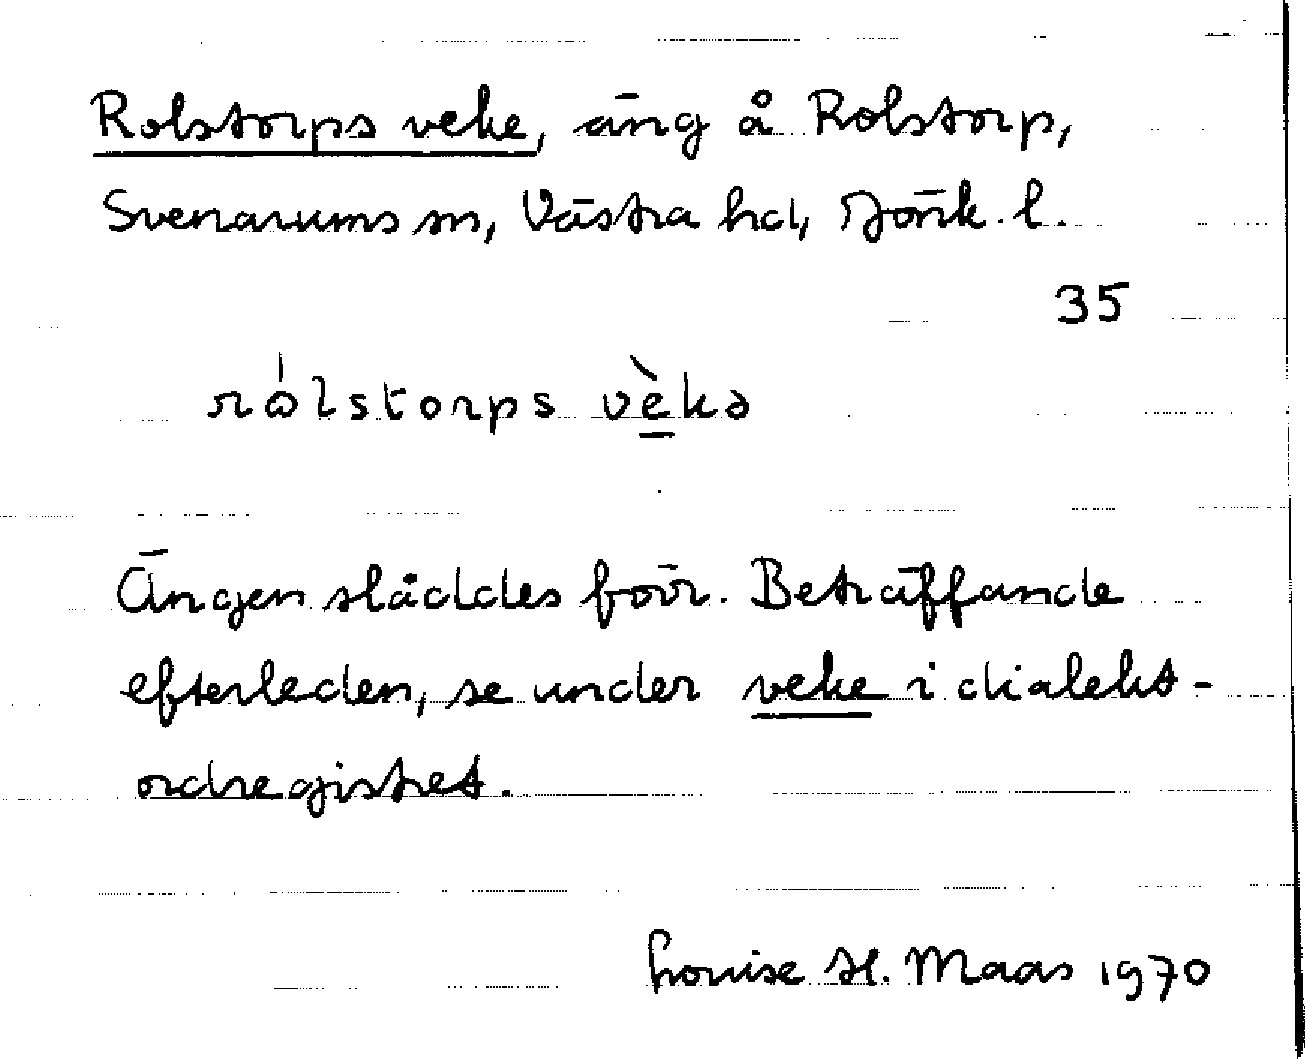 Rolstorps veke, äng å Rolstorp,
Svenarums sn, Västra hd, Jönk. l.
35
rω̍lstorps vè̱kə
Ängen slåddes förr. Beträffande
efterleden, se under veke i dialekt-
ordregistret.
Louise H. Maas 1970